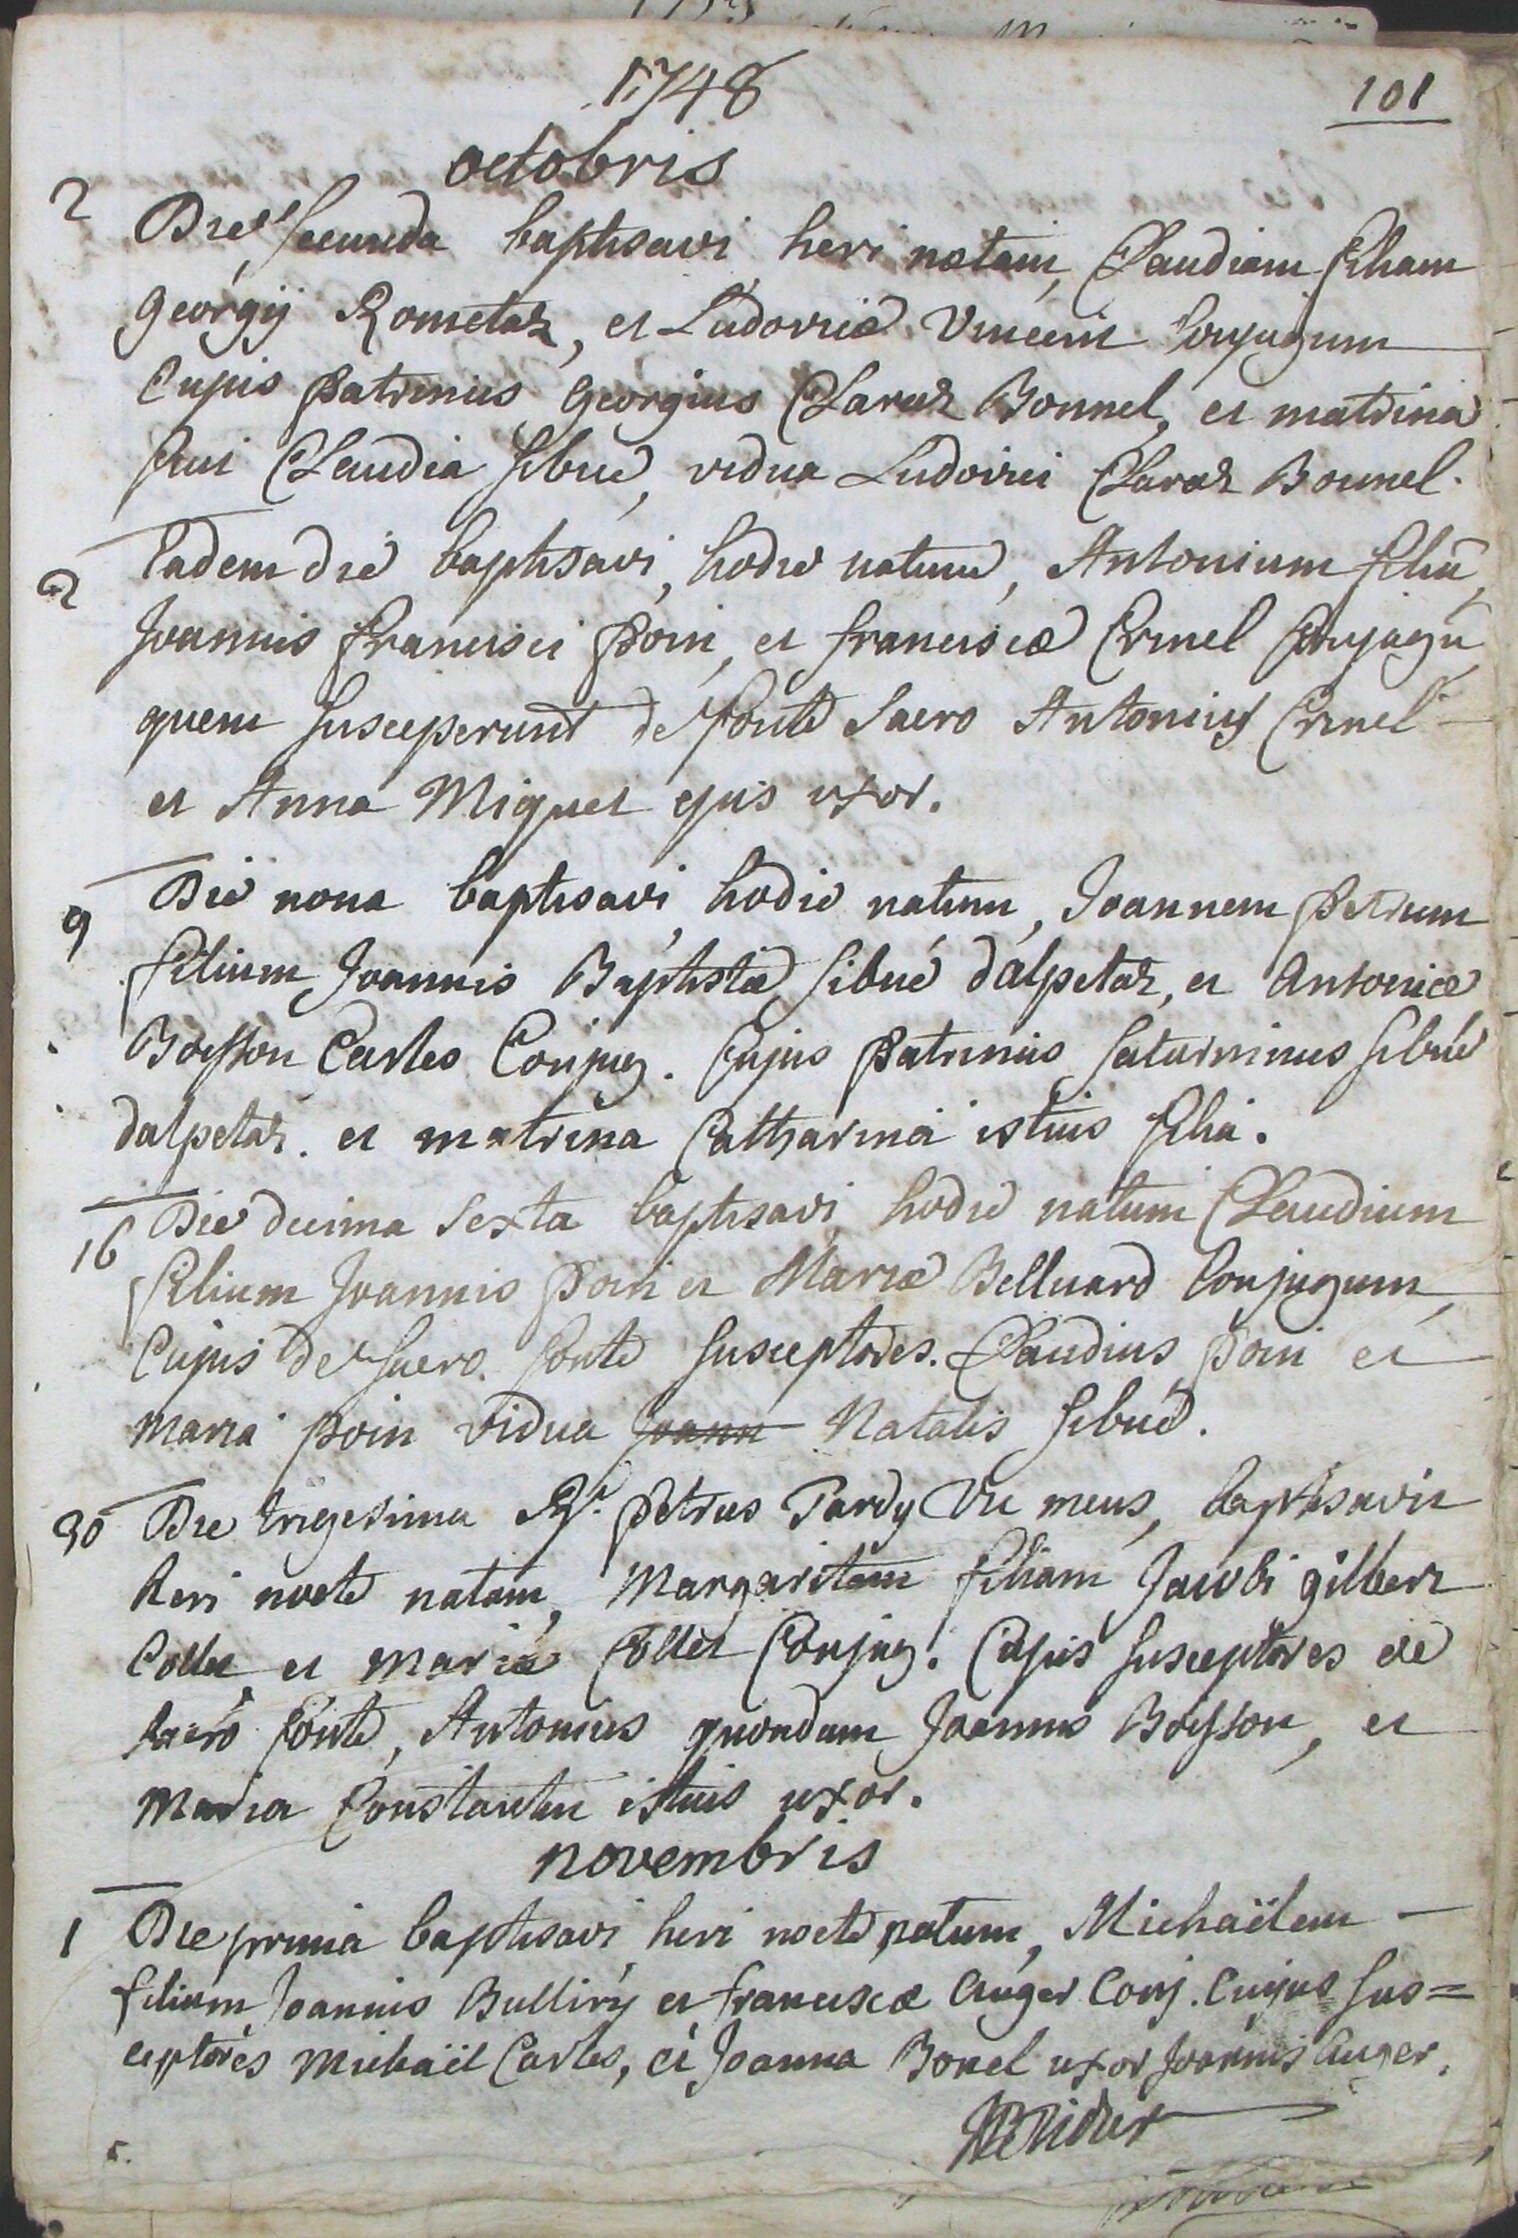 1748
101
octobris
2 Die secunda baptisavi heri natam, Claudiam filiam
Georgij Rometaz, et Ludovicæ Vincent Conjugum
Cujus Patrinus Georgius Claraz Bonnel, et matrina
fuit Claudia Sibué, vidua Ludovici Claraz Bonnel.
2 Eadem die baptisavi, hodie natum, Antonium filiū
Joannis francisci Poin, et franciscæ Crinel Conjugū
quem susceperunt de fonte Sacro Antonius Crinel
et Anna Miguet ejus uxor.
9 Die nona baptisavi, hodie natum, Joannem Petrum
filium Joannis Baptistæ Sibué dalpetaz, et Antoniæ
Boisson Carles Conjug. Cujus Patrinus Saturninus Sibué
dalpetaz. et matrina Catharina istius filia.
16 Die decima Sexta baptisavi, hodie natum Claudium
filium Joannis Poin et Mariæ Belluard Conjugum,
Cujus de Sacro fonte Susceptores. Claudius Poin et
maria Poin vidua Joann Natalis Sibué.
30 Die trigesima Rd. Petrus Tardy Vic meus, baptisavit
heri nocte natam, Margaritam filiam Jacobi gilbert
Collet et mariæ Collet Conjug. Cujus Susceptores de
sacro fonte, Antonius quondam Joannis Boisson, et
Maria Constantin istius uxor.
novembris
1 Die prima baptisavi heri nocte natum, Michaëlem
filium Joannis Bulliry et franciscæ Auger Conj. Cujus Sus=
ceptores Michaël Carles, et Joanna Bonel uxor Joannis Auger.